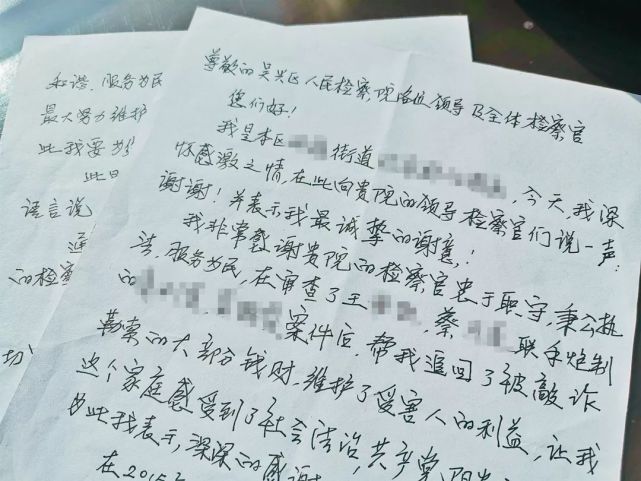 尊敬的吴兴区人民检察院各位领导及全体检察官
您们好!
我是本区 街道 ,今天,我深
怀感激之情,在此向贵院的领导检察官们说一声:
谢谢!并表示我最诚挚的谢意!
我非常感谢贵院的检察官忠于职守,秉公执
法,服务为民,在审查了王 ,蔡 联手炮制
的 案件后,帮我追回了被敲诈
勒索的大部分钱财,维护了受害人的利益,让我
这个家庭感受到了社会法治,共产党
为此我表示,深深的感谢
在2015
和谐,服务为民
最大努力维护
此我要为
此日
语言说
通
的检察
切